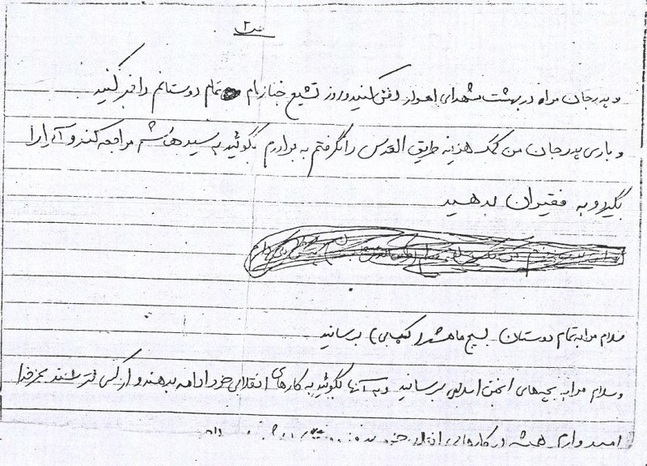 ص ۲
و پدر جان مرا در بهشت شهدای اهواز دفن کنید و روز تشیع جنازه‌ام تمام دوستانم را خبر کنید
و باری پدر جان من کمک هزینه طریق القدس را نگرفتم به برادرم بگوئید به سید هاشم مراجعه کند و آن را
بگیرد و به فقیران بدهید
سلام مرا به تمام دوستان بسیج ماهشهر برسانید
و سلام مرا به بچه‌های انجمن اسلامی برسانید و به آنها بگوئید به کارهای انقلابی خود ادامه بدهند و از کسی نترسند بجز خدا
امیدوارم همیشه در کارهای